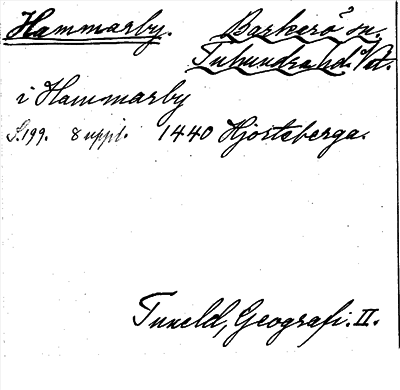 Hammarby. Barkarö sn.
Tuhundra hd. Vstm.
i Hammarby
S.199. 8 uppl. 1440 Hjortsberga.
Tuneld, Geografi. II.